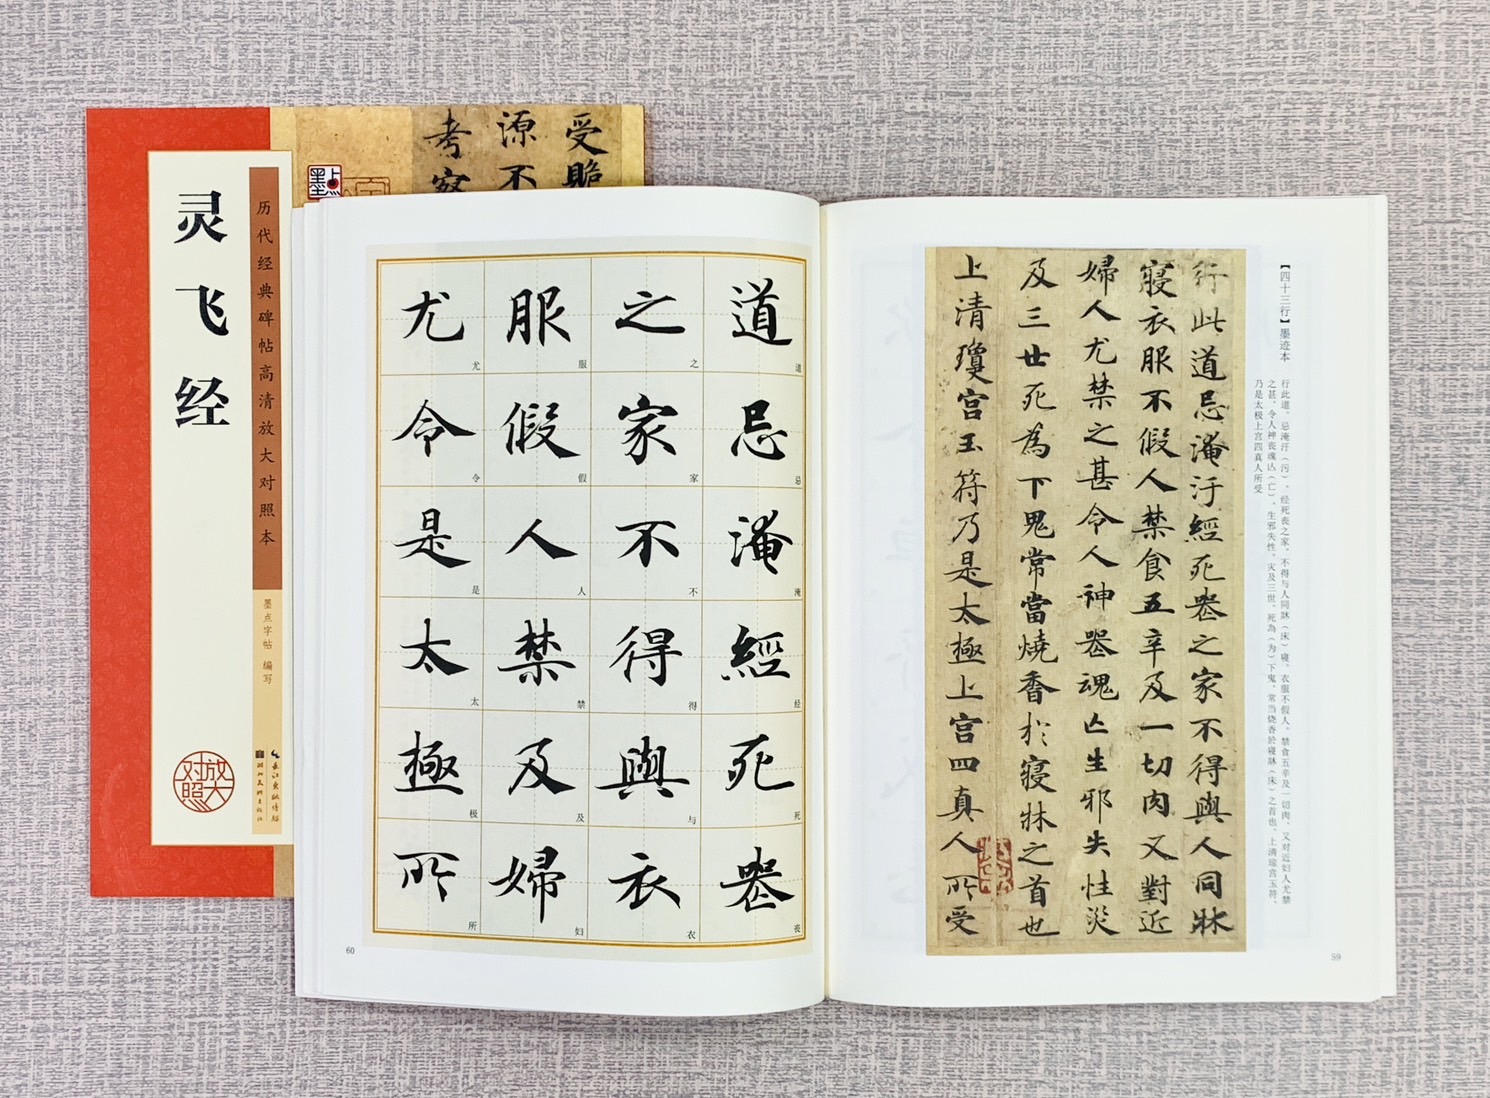 灵飞经
历代经典碑帖高清放大对照本
墨点字帖 编写
放大对照
长江出版传媒
湖北美术出版社
墨点
受
源不
考察
【四十三行】墨迹本
行此道，忌淹汙（污）、经死丧之家，不得与人同牀（床）寝，衣服不假人，禁食五辛及一切肉，又对近妇人尤禁
之甚，令人神丧魂亾（亡），生邪失性，灾及三世，死為（为）下鬼，常当烧香於寝牀（床）之首也。上清琼宫玉符，
乃是太极上宫四真人所受
行此道忌淹汙經死喪之家不得與人同牀
寢衣服不假人禁食五辛及一切肉又對近
婦人尤禁之甚令人神喪魂亾生邪失性災
及三世死為下鬼常當燒香於寢牀之首也
上清瓊宮玉符乃是太極上宮四真人所受
59
道忌淹經死喪
道忌淹经死丧
之家不得與衣
之家不得与衣
服假人禁及婦
服假人禁及妇
尤令是太極所
尤令是太极所
60